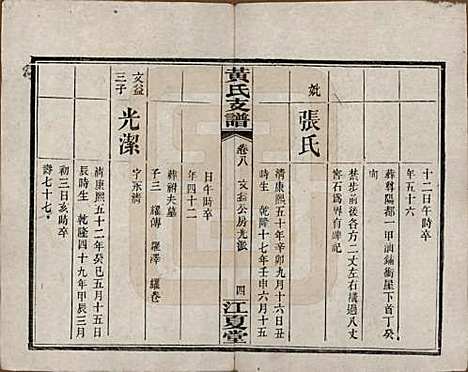 十二日午時卒
年五十六
葬尋陽都一甲油鋪衝屋下首丁癸
向
禁步前後各方二丈左右橫過八丈
窖石爲界有碑記
妣 張氏
清康熙五十年辛卯九月十六日丑
時生 乾隆十七年壬申六月十五
黃氏支譜
卷八 文益公房光派
四
江夏堂
日午時卒
年四十二
葬祔夫墓
子三 耀傳 耀澤 耀卷
文益三子 光潔
字永清
清康熙五十二年癸巳五月十五日
辰時生 乾隆四十九年甲辰三月
初三日亥時卒
壽七十七